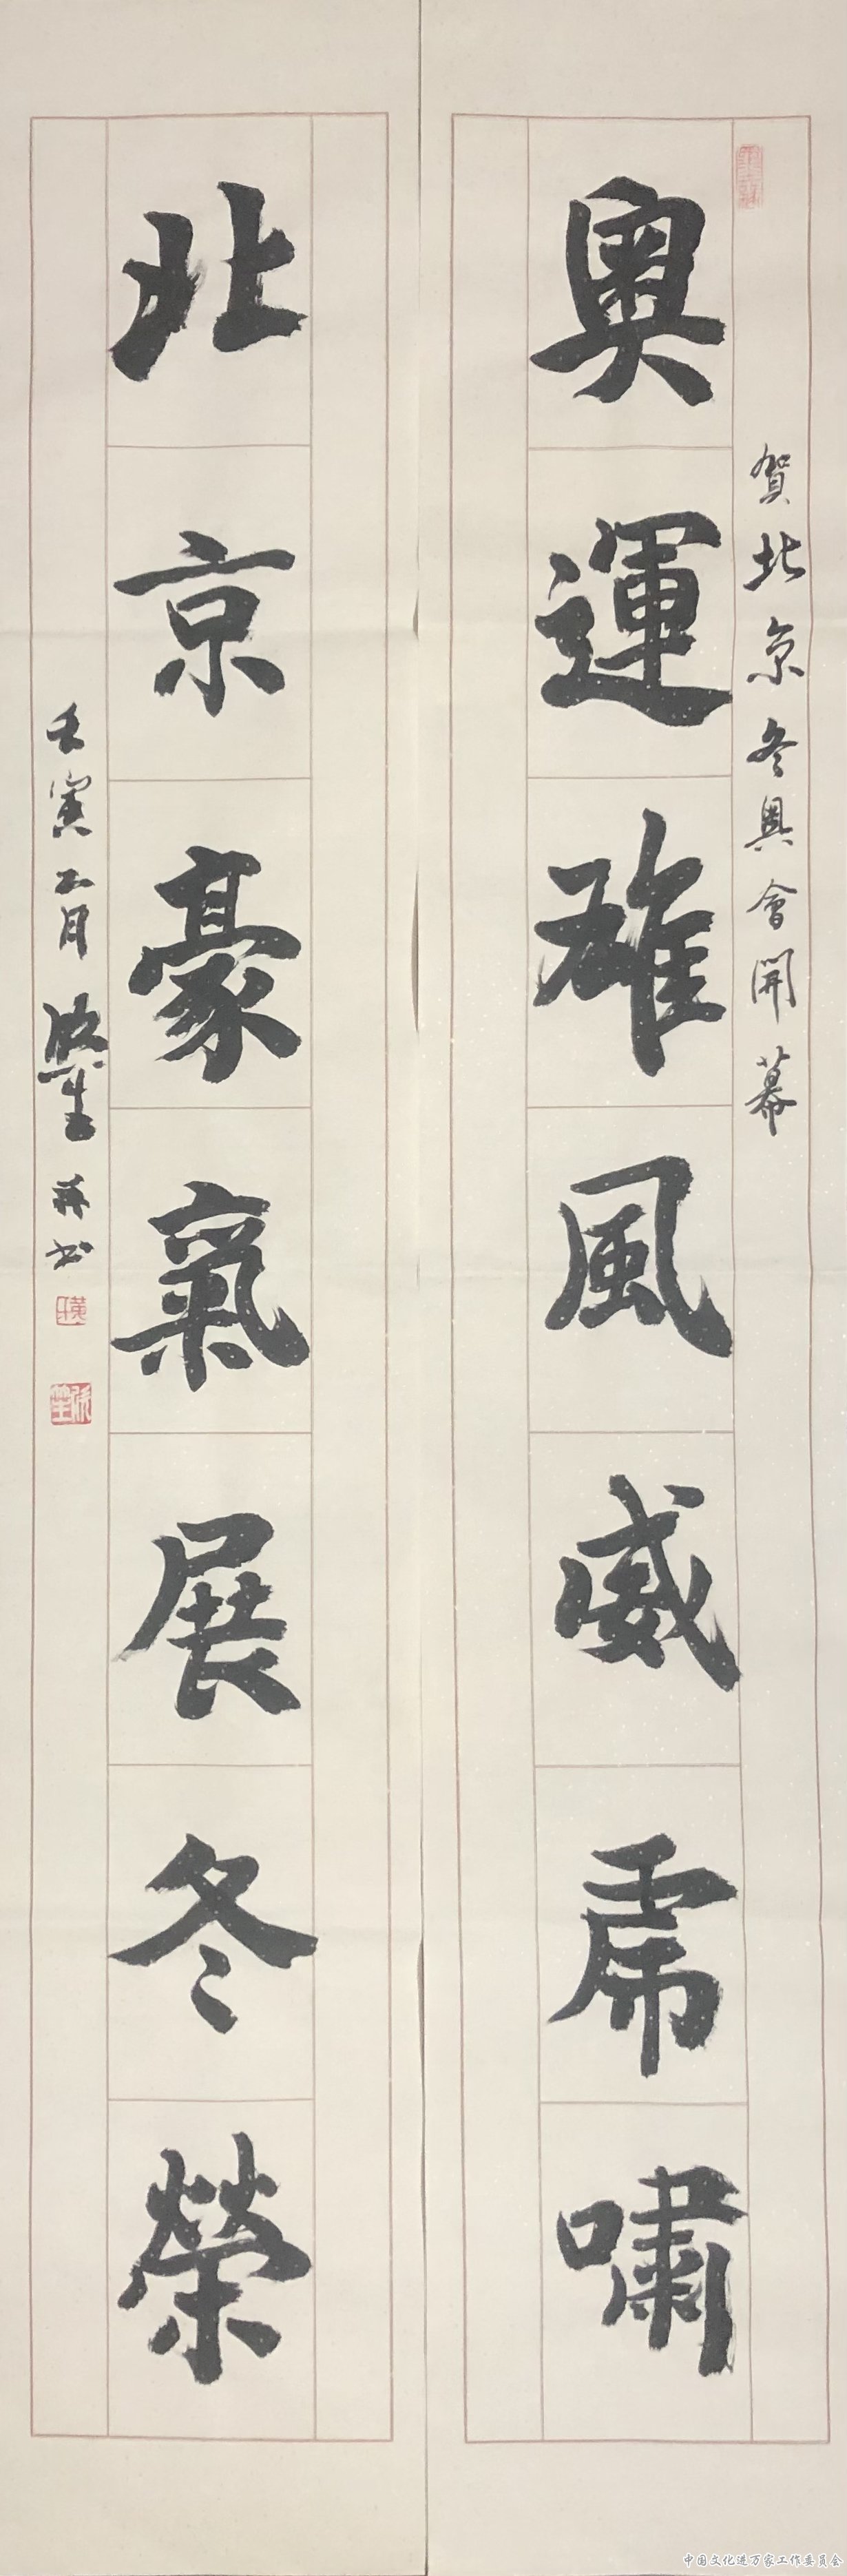 賀北京冬奥會開幕
奥運雄風威虎嘯
北京豪氣展冬榮
壬寅正月
并书
中国文化进万家工作委员会